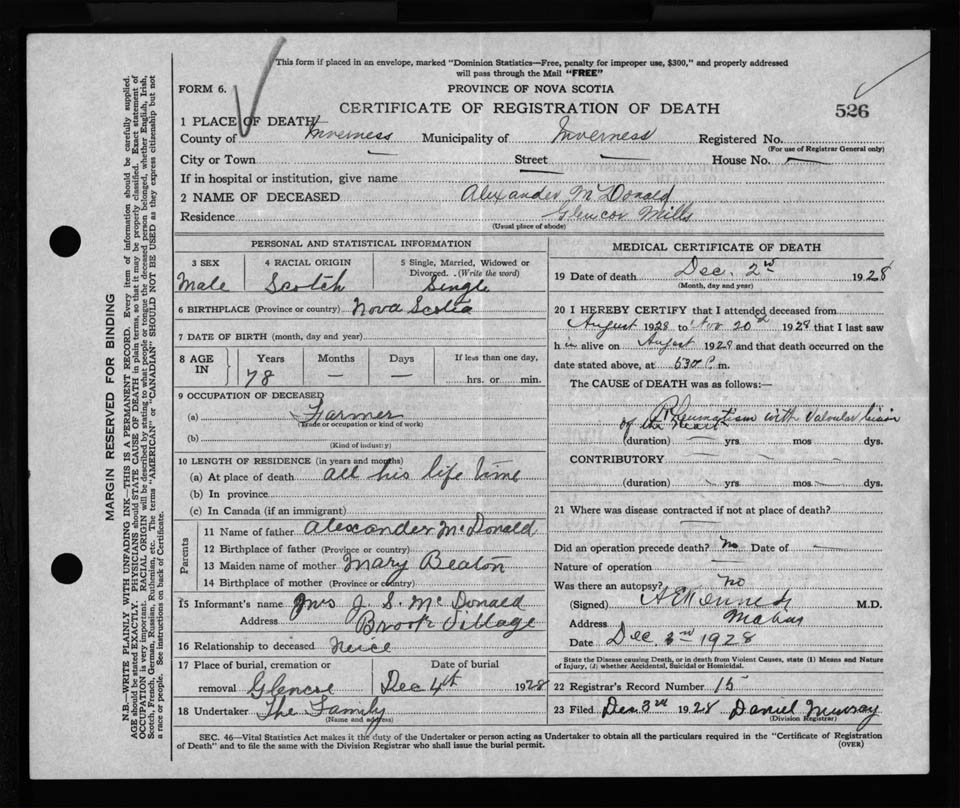 This form if placed in an envelope, marked "Dominion Statistics—Free, penalty for improper use, $300," and properly addressed
will pass through the Mail "FREE"
FORM 6.
PROVINCE OF NOVA SCOTIA
CERTIFICATE OF REGISTRATION OF DEATH
526
1 PLACE OF DEATH
County of Inverness Municipality of Inverness Registered No.
(For use of Registrar General only)
City or Town — Street — House No. —
If in hospital or institution, give name
2 NAME OF DECEASED Alexander McDonald
Residence Glencoe Mills
(Usual place of abode)
PERSONAL AND STATISTICAL INFORMATION
3 SEX 4 RACIAL ORIGIN 5 Single, Married, Widowed or
Divorced. (Write the word)
Male Scotch Single
6 BIRTHPLACE (Province or country) Nova Scotia
7 DATE OF BIRTH (month, day and year)
8 AGE IN Years Months Days If less than one day,
78 — — hrs. or min.
9 OCCUPATION OF DECEASED
(a) Farmer
(Trade or occupation or kind of work)
(b)
(Kind of industry)
10 LENGTH OF RESIDENCE (in years and months)
(a) At place of death all his life time
(b) In province
(c) In Canada (if an immigrant)
Parents
11 Name of father Alexander McDonald
12 Birthplace of father (Province or country)
13 Maiden name of mother Mary Beaton
14 Birthplace of mother (Province or country)
15 Informant's name Mrs J. S. McDonald
Address Brook Village
16 Relationship to deceased Neice
17 Place of burial, cremation or Date of burial
removal Glencoe Dec 4th 1928
18 Undertaker The Family
(Name and address)
MEDICAL CERTIFICATE OF DEATH
19 Date of death Dec. 2nd 1928
(Month, day and year)
20 I HEREBY CERTIFY that I attended deceased from
August 1928 to Nov 20th 1928 that I last saw
h im alive on August 1928 and that death occurred on the
date stated above, at 530 P. m.
The CAUSE OF DEATH was as follows:—
Rheumatism with Valvular lesion
of the Heart
(duration) — yrs mos — dys.
CONTRIBUTORY —
(duration) yrs. mos. dys.
21 Where was disease contracted if not at place of death?
Did an operation precede death? No Date of —
Nature of operation
Was there an autopsy? no
(Signed) M.D.
Address Mabou
Date Dec. 3rd 1928
State the Disease causing Death, or in death from Violent Causes, state (1) Means and Nature
of Injury, (2) whether Accidental, Suicidal or Homicidal.
22 Registrar's Record Number 15
23 Filed Dec 3rd 1928 Daniel Murray
(Division Registrar)
SEC. 46—Vital Statistics Act makes it the duty of the Undertaker or person acting as Undertaker to obtain all the particulars required in the "Certificate of Registration
of Death" and to file the same with the Division Registrar who shall issue the burial permit.
(OVER)
MARGIN RESERVED FOR BINDING
N.B.—WRITE PLAINLY WITH UNFADING INK—THIS IS A PERMANENT RECORD. Every item of information should be carefully supplied.
AGE should be stated EXACTLY. PHYSICIANS should STATE CAUSE OF DEATH in plain terms, so that it may be properly classified. Exact statement of
OCCUPATION is very important. RACIAL ORIGIN will be described by stating to what people or tongue the deceased person belonged, whether English, Irish,
Scotch, French, German, Russian, Ruthenian, etc. The terms "AMERICAN" or "CANADIAN" SHOULD NOT BE USED as they express citizenship but not
a race or people. See instructions on back of Certificate.